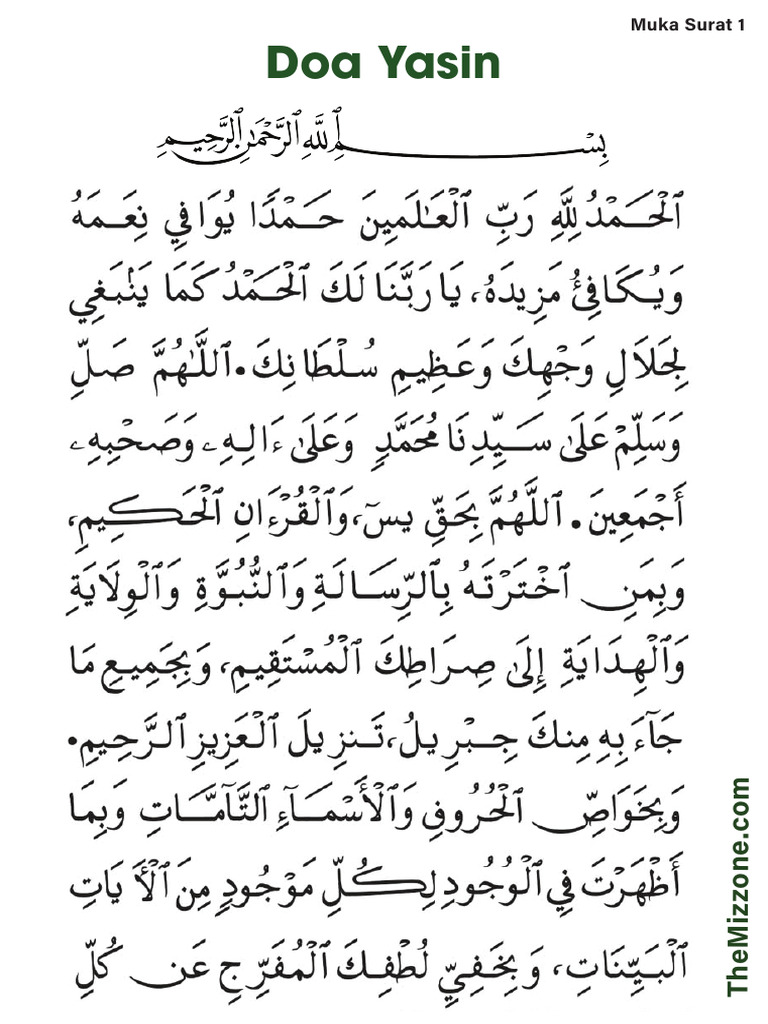 Muka Surat 1
Doa Yasin
بِسْمِ ٱللَّهِ ٱلرَّحْمَٰنِ ٱلرَّحِيمِ
ٱلْحَمْدُ لِلَّهِ رَبِّ ٱلْعَـٰلَمِينَ حَمْدًا يُوَافِي نِعَمَهُ
وَيُكَافِئُ مَزِيدَهُ، يَا رَبَّنَا لَكَ ٱلْحَمْدُ كَمَا يَنۢبَغِي
لِجَلَالِ وَجْهِكَ وَعَظِيمِ سُلْطَانِكَ. ٱللَّـٰهُمَّ صَلِّ
وَسَلِّمْ عَلَىٰ سَيِّدِنَا مُحَمَّدٍ وَعَلَىٰ ءَالِهِۦ وَصَحْبِهِۦ
أَجْمَعِينَ. ٱللَّهُمَّ بِحَقِّ يسٓ، وَٱلْقُرْءَانِ ٱلْحَكِيمِ،
وَبِمَنِ ٱخْتَرْتَهُ بِٱلرِّسَالَةِ وَٱلنُّبُوَّةِ وَٱلْوِلَايَةِ
وَٱلْهِدَايَةِ إِلَىٰ صِرَاطِكَ ٱلْمُسْتَقِيمِ، وَبِجَمِيعِ مَا
جَآءَ بِهِ مِنكَ جِبْرِيلُ، تَنزِيلَ ٱلْعَزِيزِ ٱلرَّحِيمِ.
وَبِخَوَاصِّ ٱلْحُرُوفِ وَٱلْأَسْمَآءِ ٱلتَّآمَّاتِ وَبِمَا
أَظْهَرْتَ فِي ٱلْوُجُودِ لِكُلِّ مَوْجُودٍ مِنَ ٱلْأٓيَاتِ
ٱلْبَيِّنَاتِ، وَبِخَفِيِّ لُطْفِكَ ٱلْمُفَرِّجِ عَن كُلِّ
TheMizzone.com